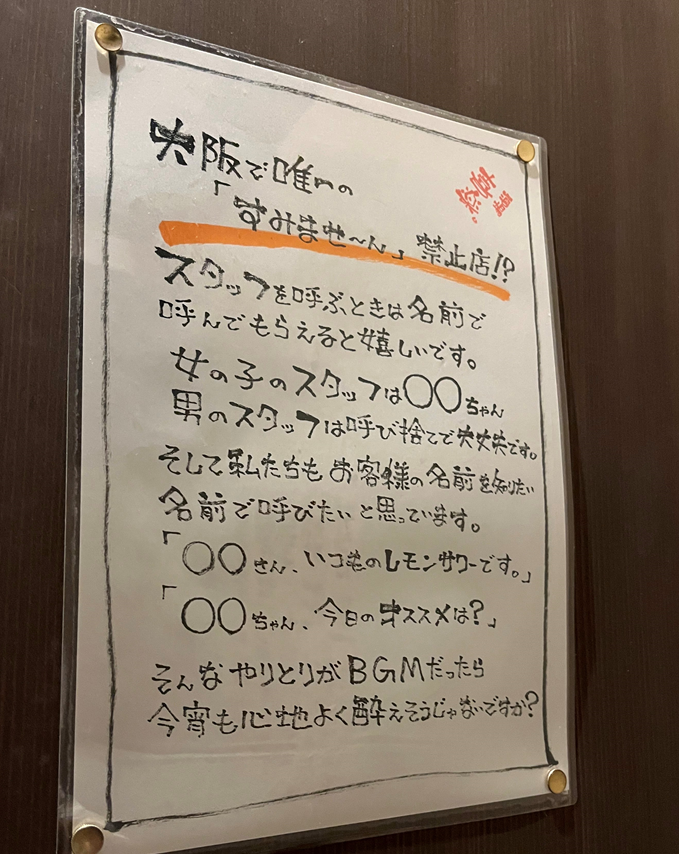 大阪で唯一の
「すみませ〜ん」禁止店!?
スタッフを呼ぶときは名前で
呼んでもらえると嬉しいです。
女の子のスタッフは〇〇ちゃん
男のスタッフは呼び捨てで大丈夫です。
そして私たちもお客様の名前を知りたい
名前で呼びたいと思っています。
「〇〇さん、いつものレモンサワーです。」
「〇〇ちゃん、今日のオススメは?」
そんなやりとりがBGMだったら
今宵も心地よく酔えそうじゃないですか?